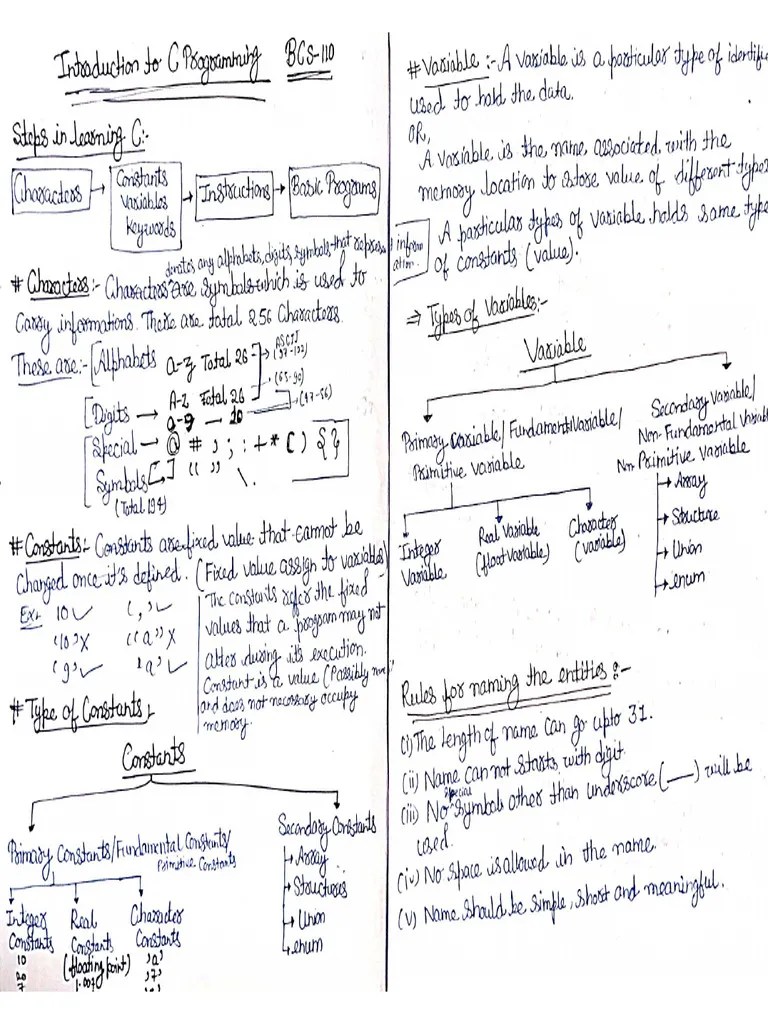 Introduction to C Programming BCS-110
Steps in learning C:-
Characters → Constants Variables Keywords → Instructions → Basic Programs
denotes any alphabets, digits, symbols that represe
# Characters:- Characters are symbols which is used to
Carry informations. There are total 256 Characters.
These are:- Alphabets a-z Total 26 → ASCII (97-122)
A-Z Total 26 → (65-90)
Digits → 0-9 — 10 (47-56)
Special → @ # , ; : + * ( ) { }
Symbols [ ] " " \ .
(Total 194)
# Constants:- Constants are fixed value that cannot be
changed once it's defined. (Fixed value assign to variables)
Ex:- 10 ✓ ',' ✓
'10' X "a" X
'9' ✓ 'a' ✓
The constants refer the fixed
values that a program may not
alter during its execution.
Constant is a value (Possibly
and does not necessary occupy
memory.
# Type of Constants:-
Constants
Primary Constants/Fundamental Constants/
Primitive Constants
Secondary Constants
→ Array
→ Structures
→ Union
→ enum
Integer Constants
10
20
7
Real Constants
(floating point)
1.007
Character Constants
'a'
'7'
# Variable :- A Variable is a particular type of identifie
used to hold the data.
OR,
A Variable is the name associated with the
memory location to store value of different types
inform
ation.
A particular types of variable holds same type
of constants (value).
⇒ Types of Variables:-
Variable
Primary variable/Fundament Variable/
Primitive variable
Secondary Variable/
Non-Fundamental Variab
Non Primitive Variable
→ Array
→ Structure
→ Union
→ enum
Integer
Variable
Real Variable
(float variable)
Character
(variable)
Rules for naming the entities :-
(i) The length of name can go upto 31.
(ii) Name can not starts with digit.
(iii) No special symbols other than underscore (__) will be
used.
(iv) No space is allowed in the name.
(v) Name should be simple, short and meaningful.